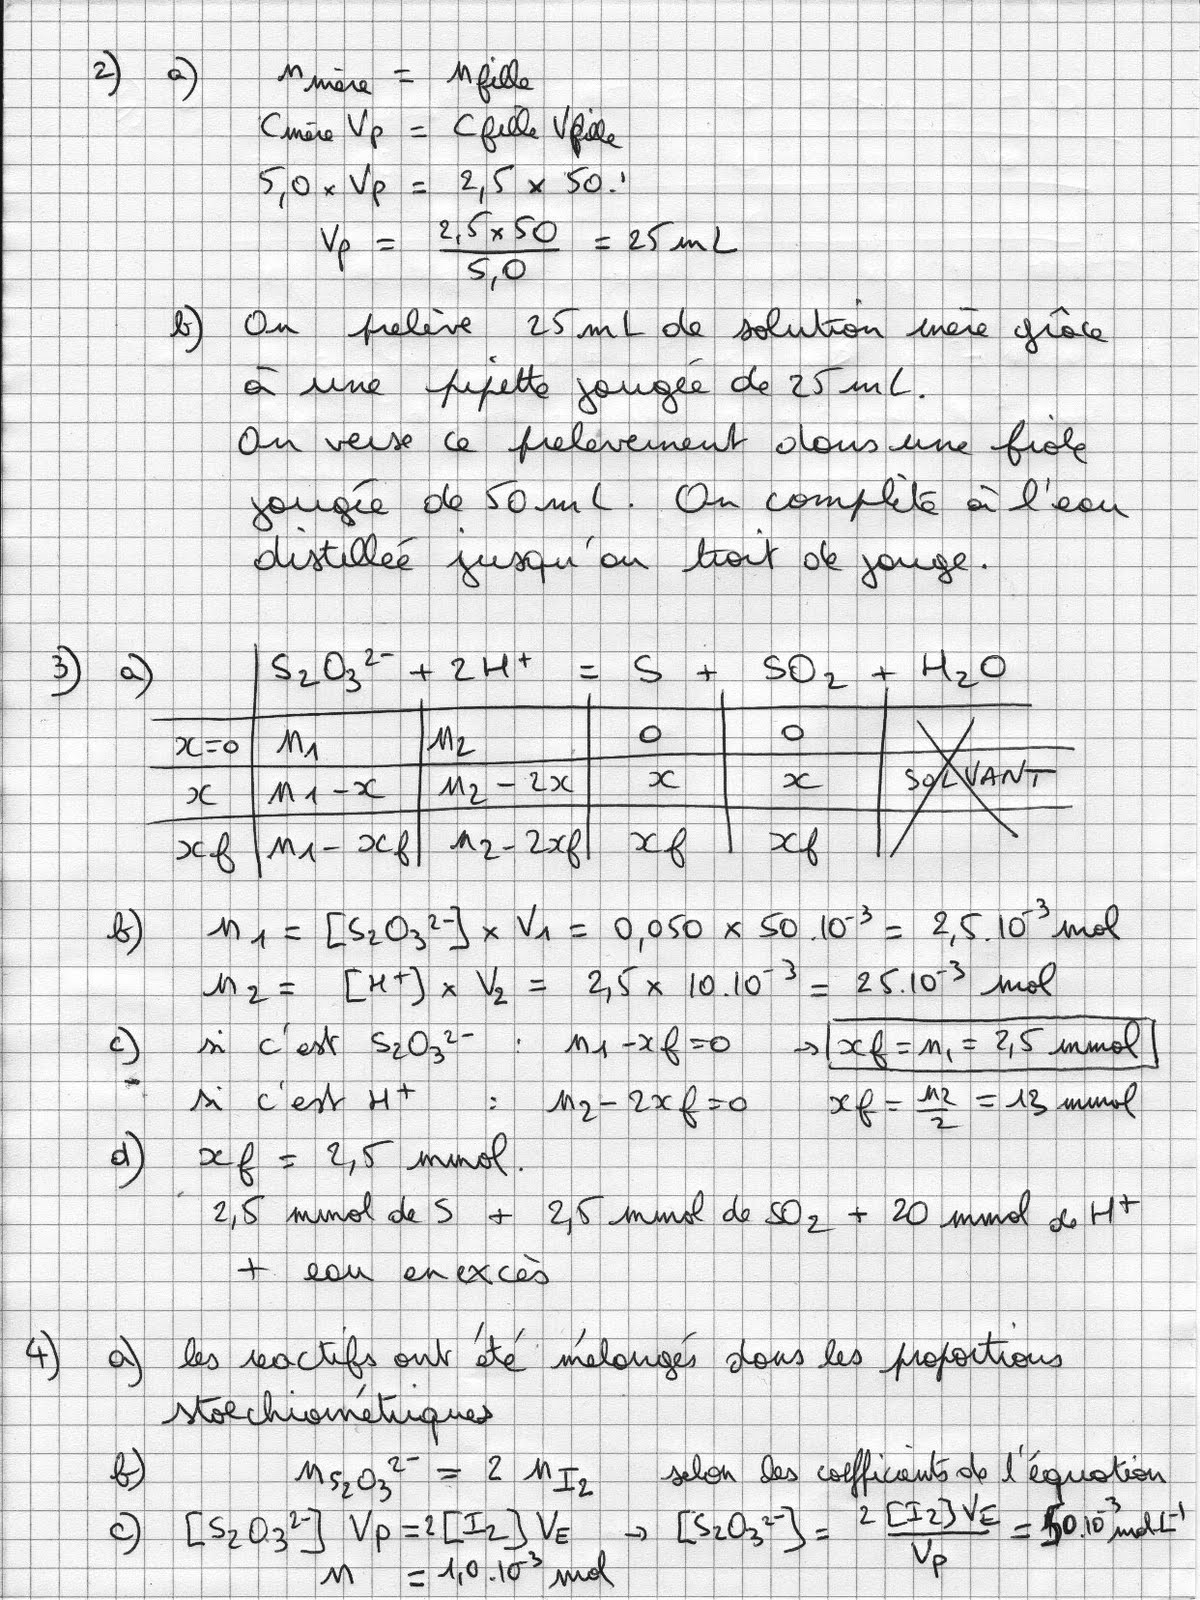 2) a) n mère = n fille
Cmère Vp = Cfille Vfille
5,0 × Vp = 2,5 × 50.
Vp = 2,5 × 50 / 5,0 = 25 mL
b) On prélève 25 mL de solution mère grâce
à une pipette jaugée de 25 mL.
On verse ce prelevement dans une fiole
jaugée de 50 mL. On complète à l'eau
distilleé jusqu'au trait de jauge.
3) a) S₂O₃²⁻ + 2H⁺ = S + SO₂ + H₂O
x=0 n₁ n₂ 0 0
x n₁-x n₂-2x x x SOLVANT
xf n₁-xf n₂-2xf xf xf
b) n₁ = [S₂O₃²⁻] × V₁ = 0,050 × 50.10⁻³ = 2,5.10⁻³ mol
n₂ = [H⁺] × V₂ = 2,5 × 10.10⁻³ = 25.10⁻³ mol
c) si c'est S₂O₃²⁻ : n₁-xf=0 → xf = n₁ = 2,5 mmol
si c'est H⁺ : n₂-2xf=0 xf = n₂/2 = 13 mmol
d) xf = 2,5 mmol.
2,5 mmol de S + 2,5 mmol de SO₂ + 20 mmol de H⁺
+ eau en excès
4) a) les reactifs ont été mélangés dans les proportions
stoechiométriques
b) nS₂O₃²⁻ = 2 nI₂ selon les coefficients de l'équation
c) [S₂O₃²⁻] Vp = 2[I₂] VE → [S₂O₃²⁻] = 2[I₂]VE / Vp = 50.10⁻³ mol.L⁻¹
n = 1,0.10⁻³ mol